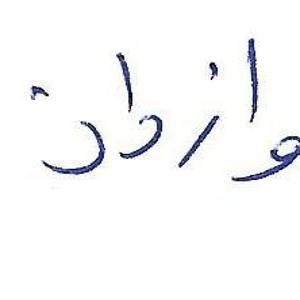 وازوان